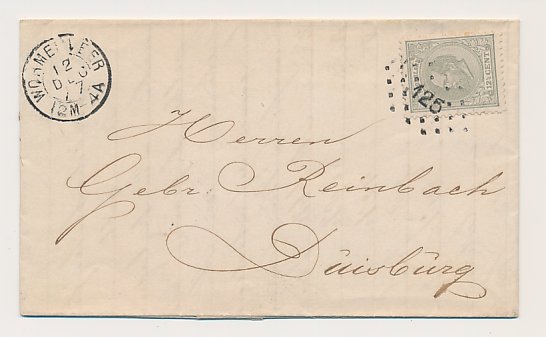 WORMERVEER
12
DEC
77
12M-4A
12½ CENT
125
Herren
Gebr: Reinbach
Duisburg